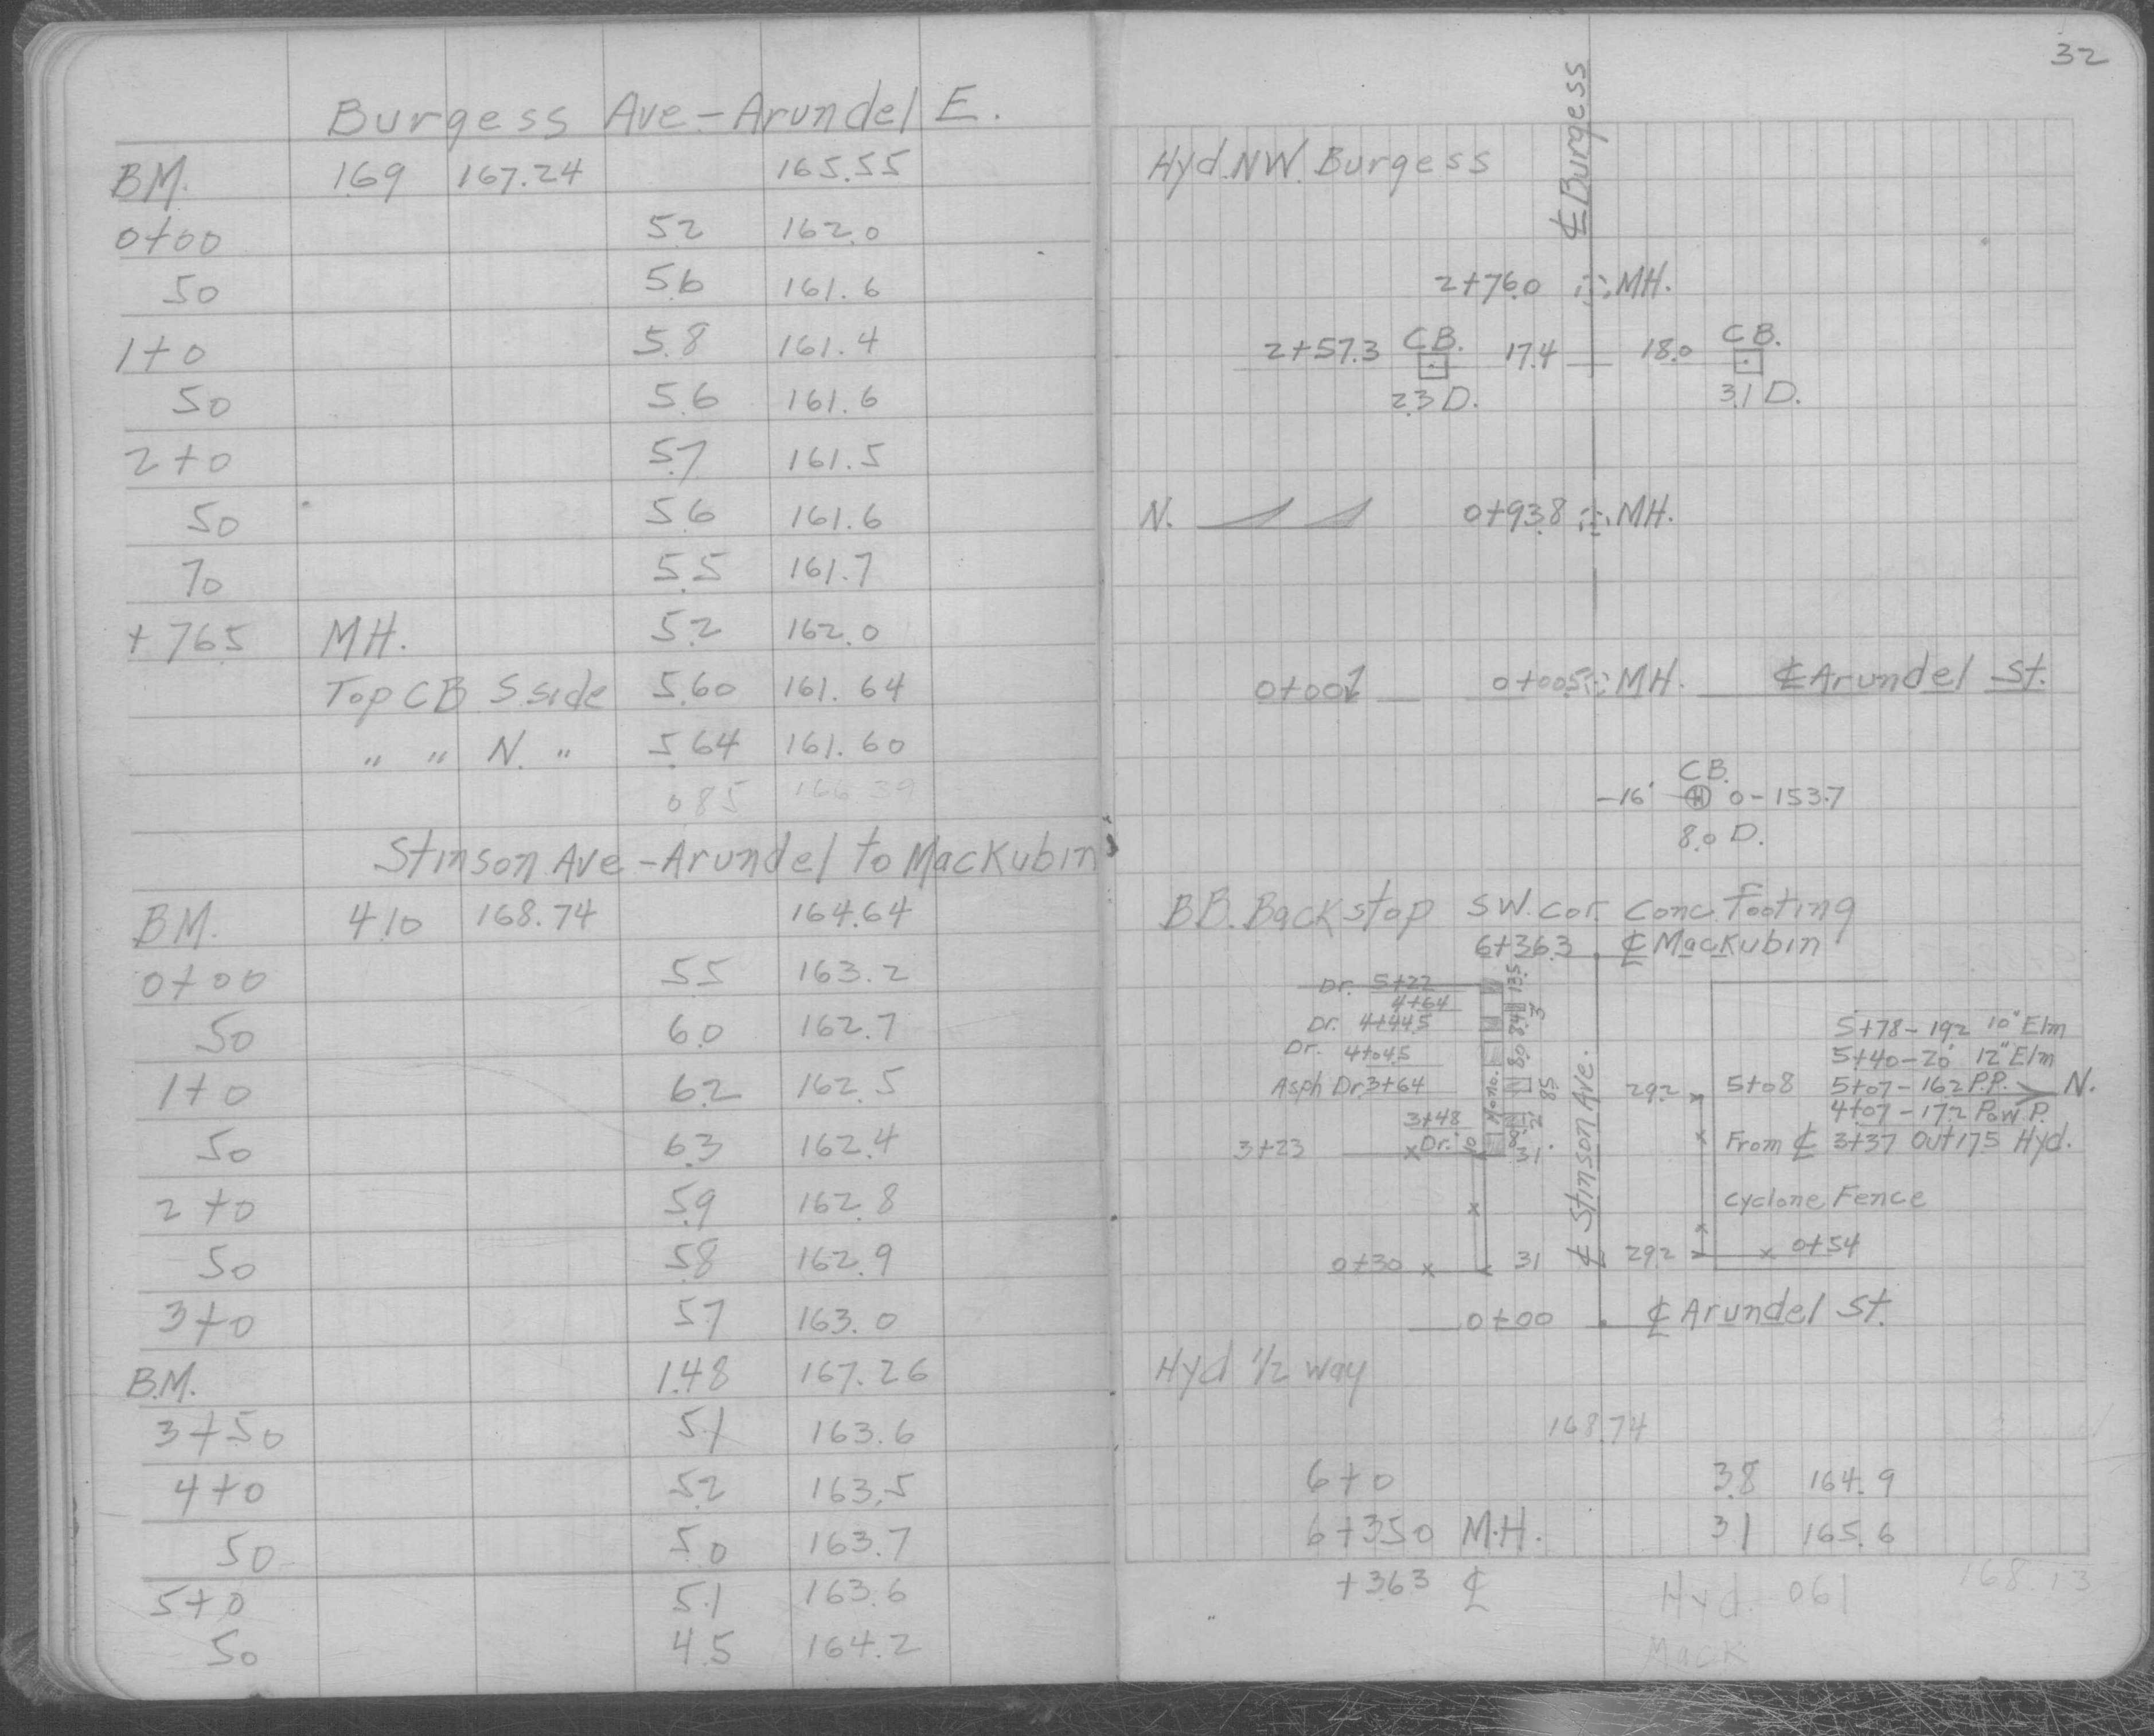 32
Burgess Ave - Arundel E.
BM. 1.69 167.24 165.55
0+00 5.2 162.0
50 5.6 161.6
1+0 5.8 161.4
50 5.6 161.6
2+0 5.7 161.5
50 5.6 161.6
70 5.5 161.7
+76.5 MH. 5.2 162.0
Top CB S. side 5.60 161.64
" " N. " 5.64 161.60
0.85 166.39
Stinson Ave - Arundel to Mackubin
BM. 4.10 168.74 164.64
0+00 5.5 163.2
50 6.0 162.7
1+0 6.2 162.5
50 6.3 162.4
2+0 5.9 162.8
50 5.8 162.9
3+0 5.7 163.0
B.M. 1.48 167.26
3+50 5.1 163.6
4+0 5.2 163.5
50 5.0 163.7
5+0 5.1 163.6
50 4.5 164.2
℄ Burgess
Hyd. NW. Burgess
2+76.0 MH.
2+57.3 C.B. 17.4 18.0 C.B.
2.3 D. 3.1 D.
N. 0+93.8 MH.
0+00 0+00.5 MH. ℄ Arundel St.
C.B.
-16' 0-153.7
8.0 D.
BB. Backstop SW. cor. Conc. Footing
6+36.3 ℄ Mackubin
Dr. 5+22
4+64
Dr. 4+44.5
Dr. 4+04.5
Asph Dr. 3+64
3+48
Dr.
3+23 31
Mono.
℄ Stinson Ave.
5+78-19.2 10" Elm
5+40-20' 12" Elm
29.2 5+08 5+07-16.2 P.P. N.
4+07-17.2 Pow. P.
From ℄ 3+37 out 17.5 Hyd.
Cyclone Fence
0+30 31 29.2 0+54
0+00 ℄ Arundel St.
Hyd 1/2 way
168.74
6+0 3.8 164.9
6+35.0 M.H. 3.1 165.6
+36.3 ℄
Hyd. 0.61 168.13
Mack